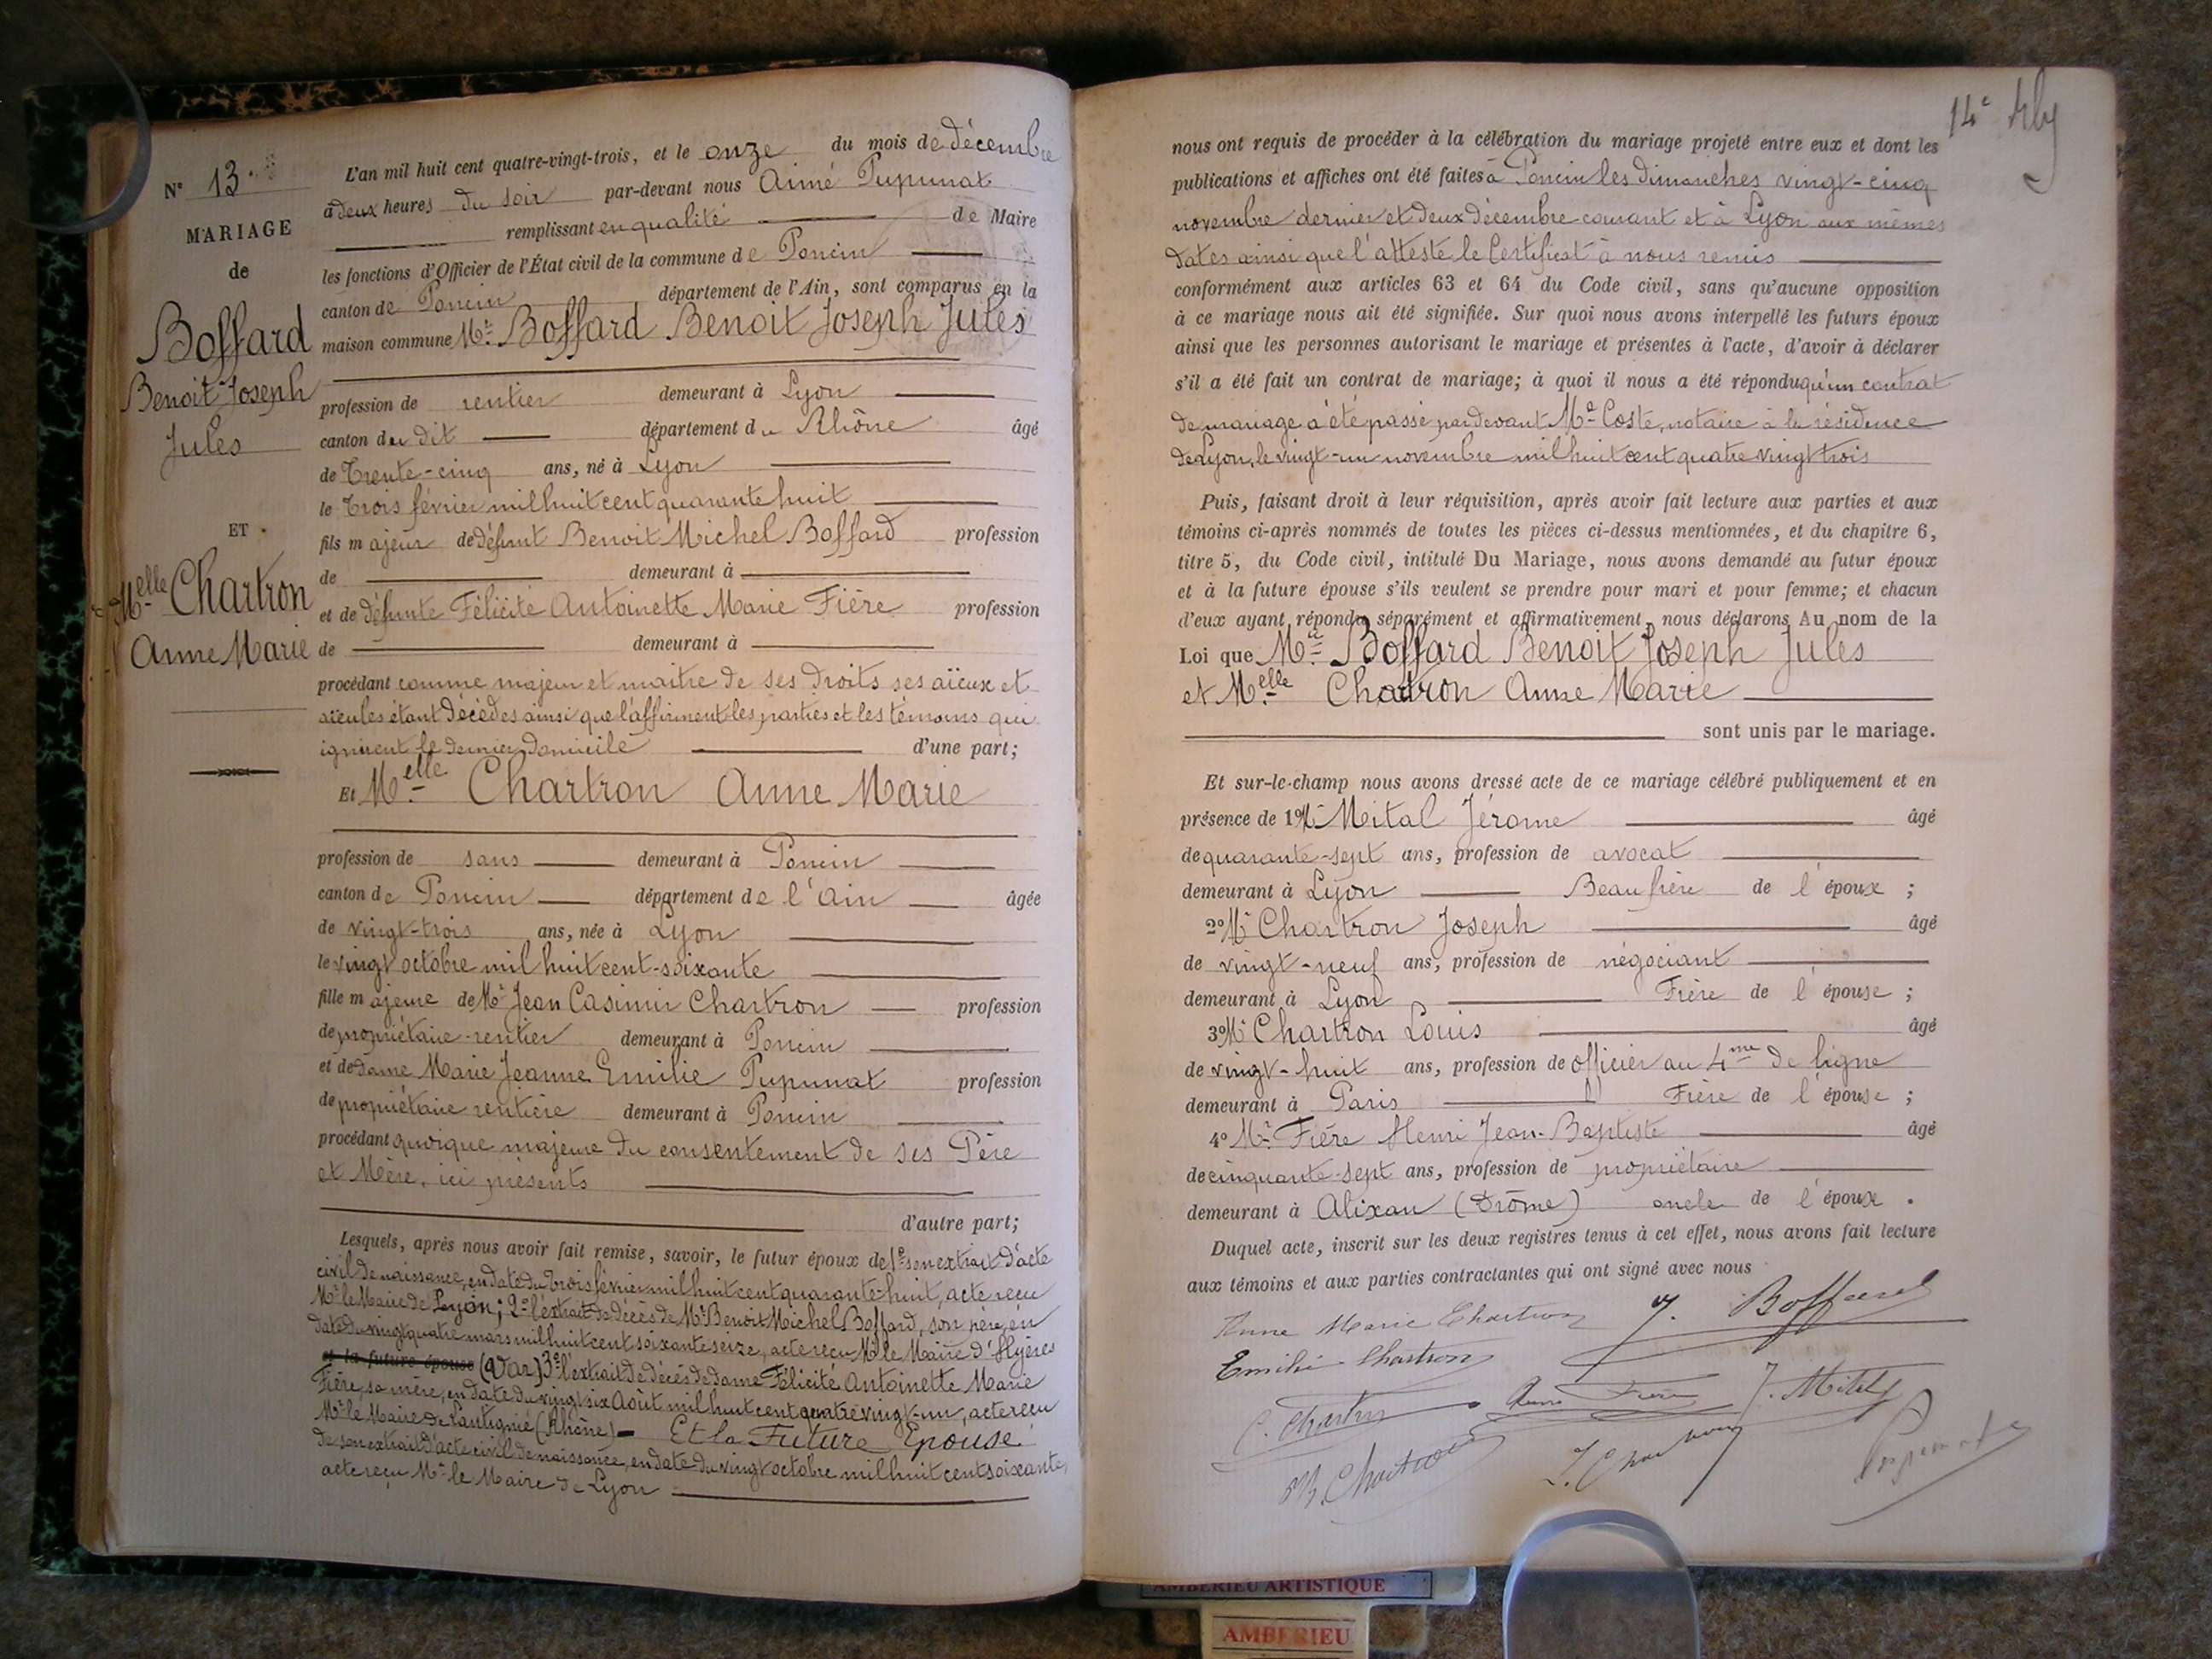 N° 13.
MARIAGE
de
Boffard
Benoit Joseph
Jules
ET
Melle Chartron
Anne Marie
L'an mil huit cent quatre-vingt-trois, et le onze du mois de décembre
à deux heures du soir par-devant nous Aimé Pupunat
remplissant en qualité de Maire
les fonctions d'Officier de l'État civil de la commune de Poncin
canton de Poncin département de l'Ain, sont comparus en la
maison commune Mr Boffard Benoit Joseph Jules
profession de rentier demeurant à Lyon
canton du dit département du Rhône âgé
de Trente-cinq ans, né à Lyon
le Trois février mil huit cent quarante huit
fils majeur de défunt Benoit Michel Boffard profession
de demeurant à
et de défunte Félicité Antoinette Marie Fière profession
de demeurant à
procédant comme majeur et maitre de ses droits ses aïeux et
aïeules étant décédés ainsi que l'affirment les parties et les témoins qui
ignorent le dernier domicile d'une part;
Et Melle Chartron Anne Marie
profession de sans demeurant à Poncin
canton de Poncin département de l'Ain âgée
de vingt-trois ans, née à Lyon
le vingt octobre mil huit cent-soixante
fille majeure de Mr Jean Casimir Chartron profession
de propriétaire-rentier demeurant à Poncin
et de dame Marie Jeanne Emilie Pupunat profession
de propriétaire rentière demeurant à Poncin
procédant quoique majeure du consentement de ses Père
et Mère, ici présents
d'autre part;
Lesquels, après nous avoir fait remise, savoir, le futur époux de 1° son extrait d'acte
civil de naissance, en date du Trois février mil huit cent quarante-huit, acte reçu
Mr le Maire de Lyon; 2° l'extrait de décès de Mr Benoit Michel Boffard, son père, en
date du vingt quatre mars mil huit cent soixante seize, acte reçu Mr le Maire d'Hyères
et la future épouse (Var) 3° l'extrait de décès de dame Félicité Antoinette Marie
Fière, sa mère, en date du vingt six Août mil huit cent quatre vingt-un, acte reçu
Mr le Maire de Lantignié (Rhône) - Et la Future Epouse
de son extrait d'acte civil de naissance, en date du vingt octobre mil huit cent soixante,
acte reçu Mr le Maire de Lyon
14e
nous ont requis de procéder à la célébration du mariage projeté entre eux et dont les
publications et affiches ont été faites à Poncin les Dimanches vingt-cinq
novembre dernier et deux décembre courant et à Lyon aux mêmes
dates ainsi que l'atteste le Certificat à nous remis
conformément aux articles 63 et 64 du Code civil, sans qu'aucune opposition
à ce mariage nous ait été signifiée. Sur quoi nous avons interpellé les futurs époux
ainsi que les personnes autorisant le mariage et présentes à l'acte, d'avoir à déclarer
s'il a été fait un contrat de mariage; à quoi il nous a été répondu qu'un contrat
de mariage a été passé par devant Me Coste, notaire à la résidence
de Lyon, le vingt-un novembre mil huit cent quatre vingt trois
Puis, faisant droit à leur réquisition, après avoir fait lecture aux parties et aux
témoins ci-après nommés de toutes les pièces ci-dessus mentionnées, et du chapitre 6,
titre 5, du Code civil, intitulé Du Mariage, nous avons demandé au futur époux
et à la future épouse s'ils veulent se prendre pour mari et pour femme; et chacun
d'eux ayant répondu séparément et affirmativement, nous déclarons Au nom de la
Loi que Mr Boffard Benoit Joseph Jules
et Melle Chartron Anne Marie
sont unis par le mariage.
Et sur-le-champ nous avons dressé acte de ce mariage célébré publiquement et en
présence de 1° Mr Mital Jérome âgé
de quarante-sept ans, profession de avocat
demeurant à Lyon Beau frère de l'époux ;
2° Mr Chartron Joseph âgé
de vingt-neuf ans, profession de négociant
demeurant à Lyon Frère de l'épouse ;
3° Mr Chartron Louis âgé
de vingt-huit ans, profession de officier au 4me de ligne
demeurant à Paris Frère de l'épouse ;
4° Mr Fière Henri Jean-Baptiste âgé
de cinquante-sept ans, profession de propriétaire
demeurant à Alixan (Drôme) oncle de l'époux .
Duquel acte, inscrit sur les deux registres tenus à cet effet, nous avons fait lecture
aux témoins et aux parties contractantes qui ont signé avec nous
Anne Marie Chartron J. Boffard
Emilie Chartron
C. Chartron Fière J. Mital
Chartron L. Chartron
AMBERIEU ARTISTIQUE
AMBERIEU